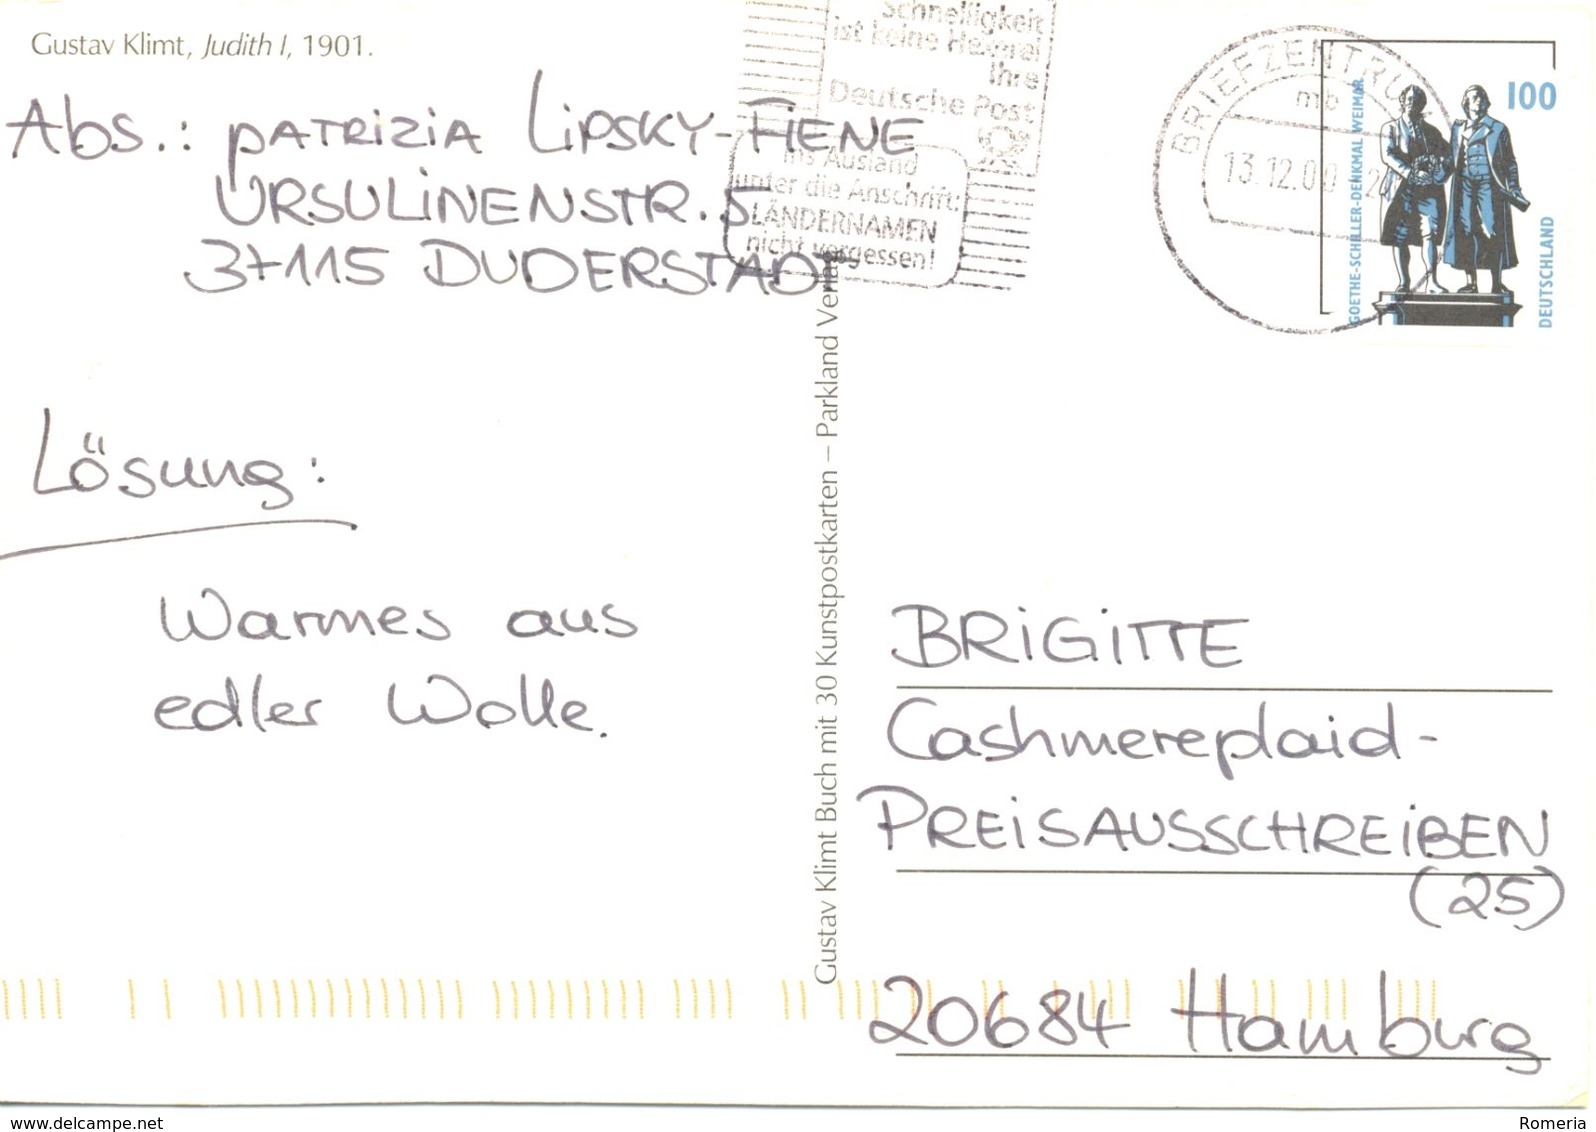 Gustav Klimt, Judith I, 1901.
Schnelligkeit
ist keine Hexerei
Ihre
Deutsche Post
ins Ausland
unter die Anschrift:
LÄNDERNAMEN
nicht vergessen!
BRIEFZENTRUM
mb
13.12.00
100
GOETHE-SCHILLER-DENKMAL WEIMAR
DEUTSCHLAND
Abs.: PATRIZIA LIPSKY-FIENE
URSULINENSTR. 5
37115 DUDERSTADT
Lösung:
Warmes aus
edler Wolle.
Gustav Klimt Buch mit 30 Kunstpostkarten – Parkland Verlag
BRIGITTE
Cashmereplaid-
PREISAUSSCHREIBEN
(25)
20684 Hamburg
www.delcampe.net
Romeria